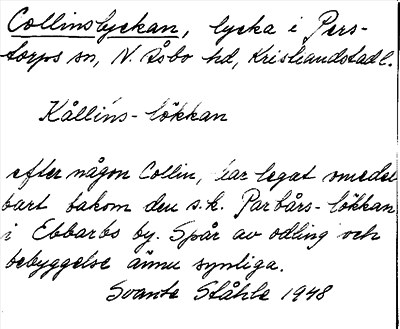 Collinslyckan, lycka i Pers-
torps sn, N. Åsbo hd, Kristianstad l.
Kållins-lökkan
efter någon Collin, har legat omedel
bart bakom den s.k. Parbårs-lökkan
i Ebbarbs by. Spår av odling och
bebyggelse ännu synliga.
Svante Ståhle 1948